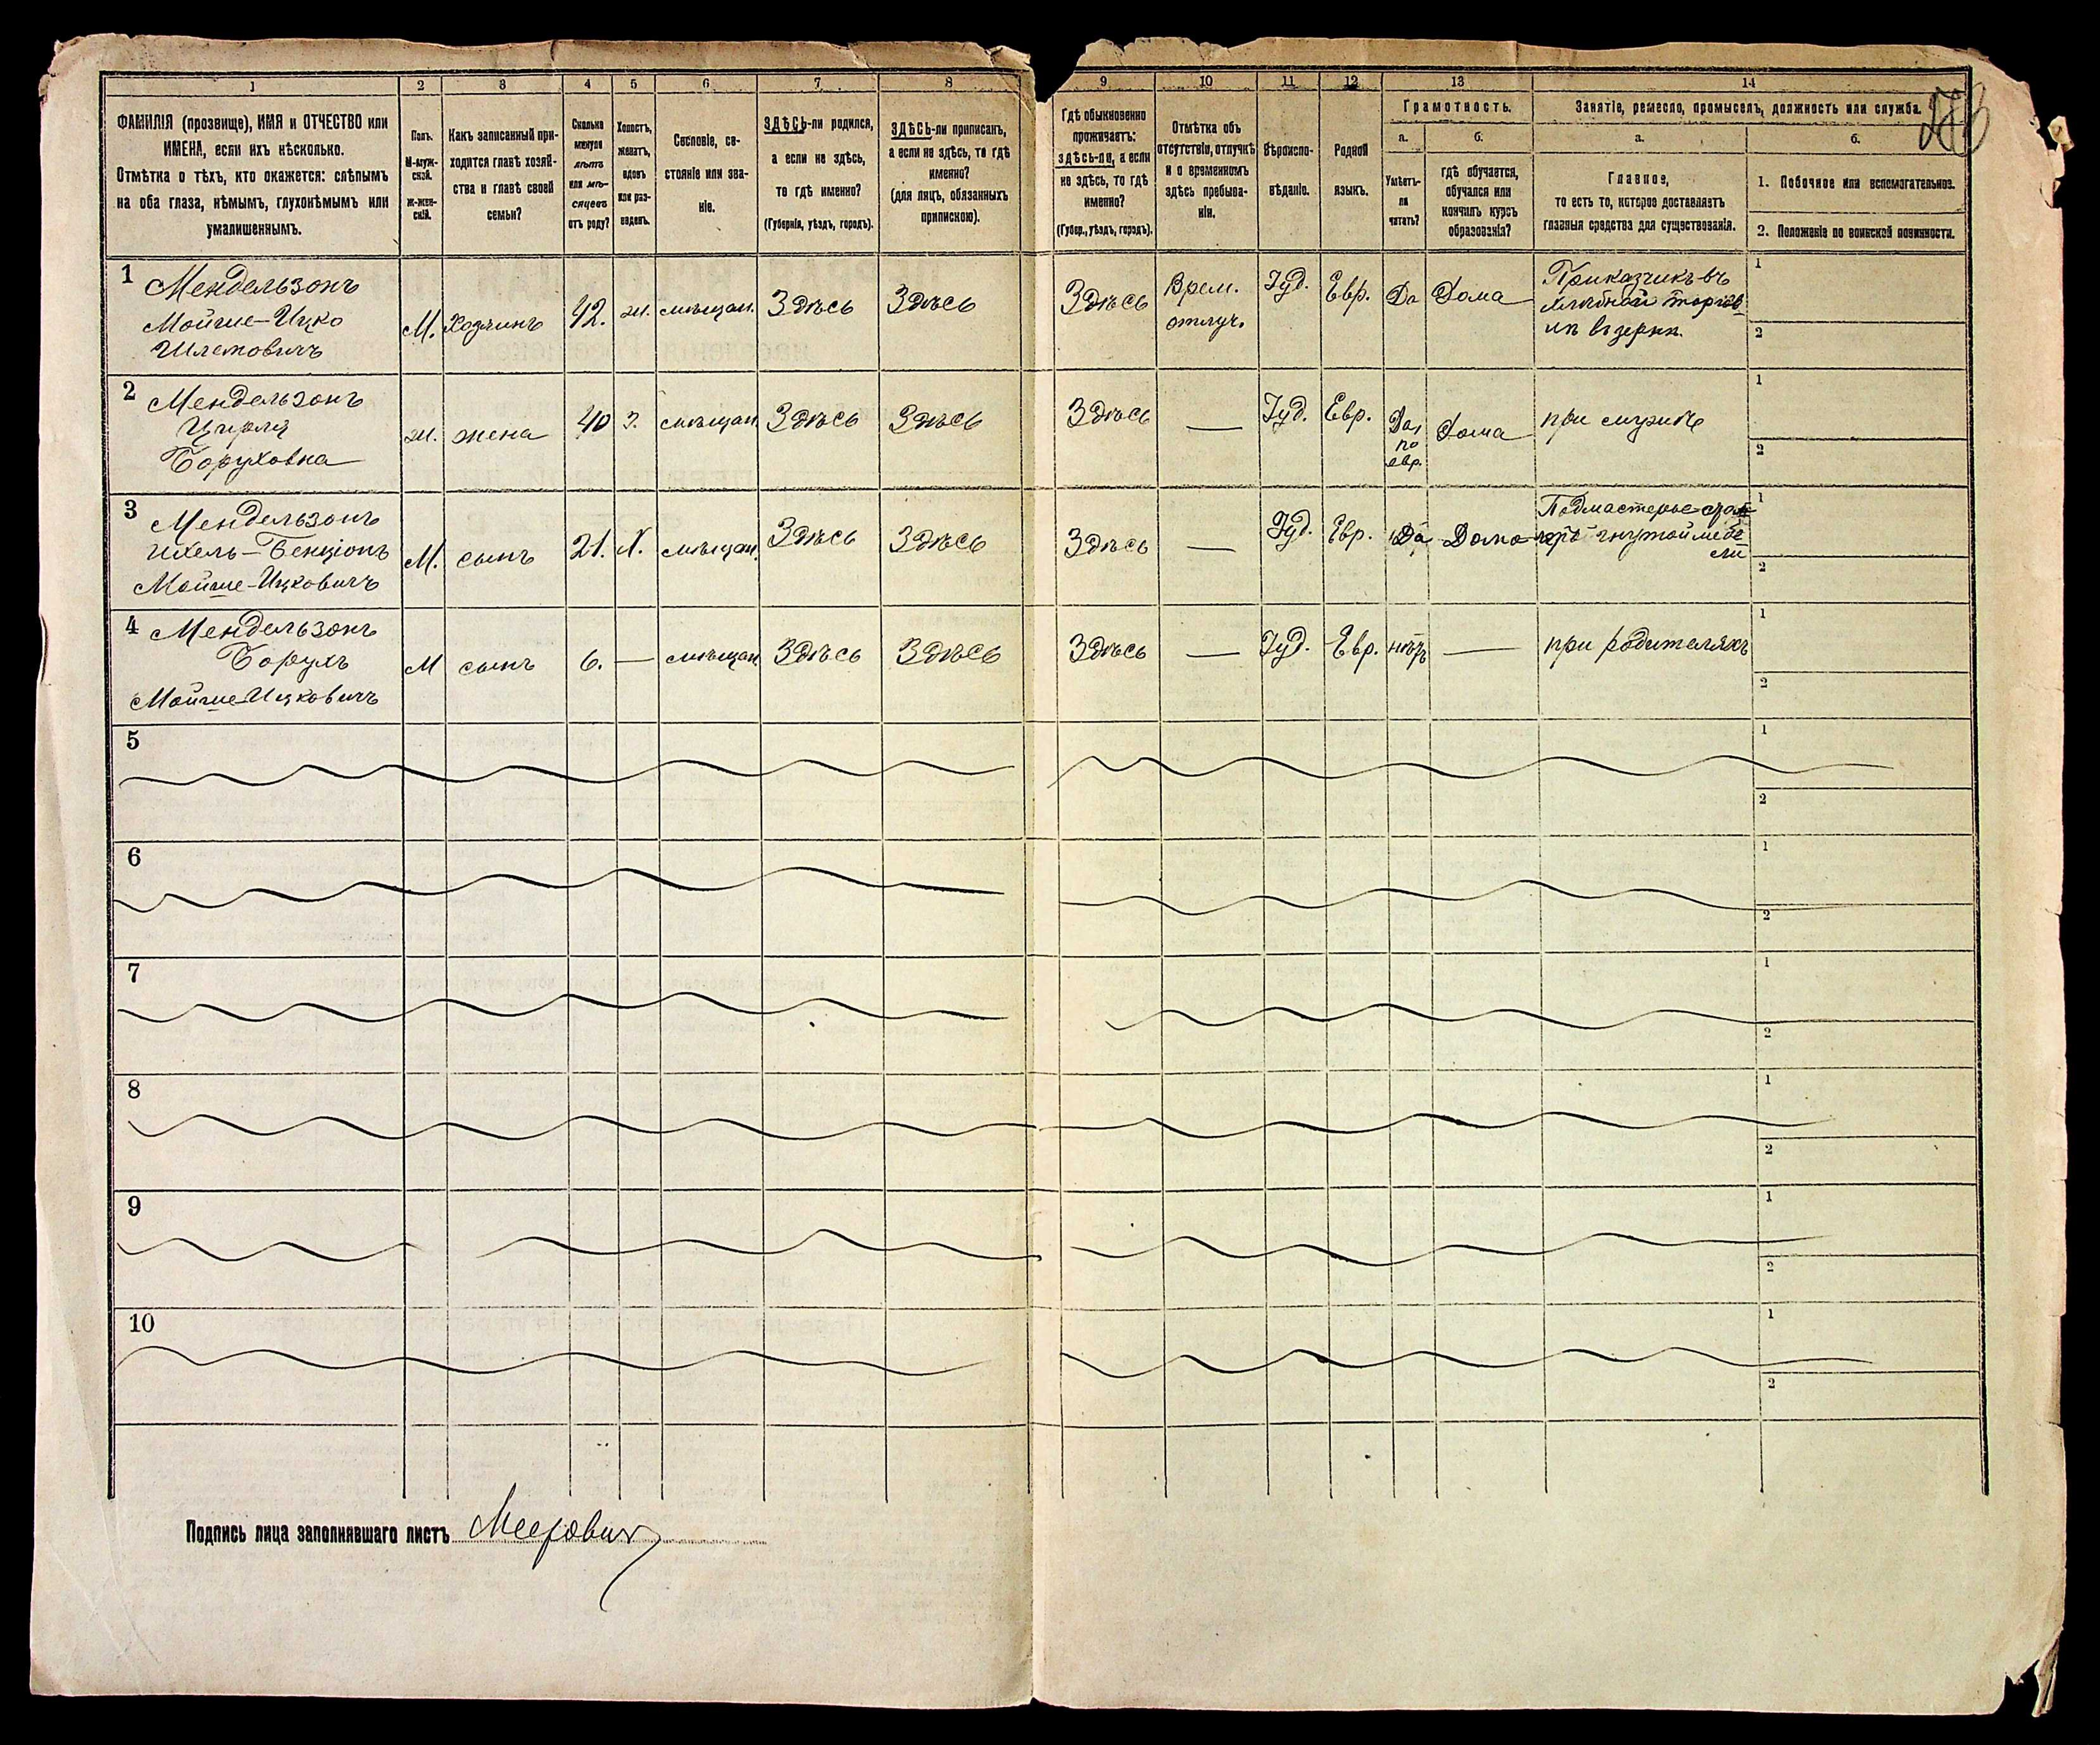 1 2 3 4 5 6 7 8 9 10 11 12 13 14
ФАМИЛІЯ (прозвище), ИМЯ и ОТЧЕСТВО или
ИМЕНА, если ихъ нѣсколько.
Отмѣтка о тѣхъ, кто окажется: слѣпымъ
на оба глаза, нѣмымъ, глухонѣмымъ или
умалишеннымъ.
Полъ.
М-муж-
ской.
ж-жен-
скій.
Какъ записанный при-
ходится главѣ хозяй-
ства и главѣ своей
семьи?
Сколько
минуло
лѣтъ
или мѣ-
сяцевъ
отъ роду?
Холостъ,
женатъ,
вдовъ
или раз-
веденъ.
Сословіе, со-
стояніе или зва-
ніе.
ЗДѢСЬ-ли родился,
а если не здѣсь,
то гдѣ именно?
(Губернія, уѣздъ, городъ).
ЗДѢСЬ-ли приписанъ,
а если не здѣсь, то гдѣ
именно?
(для лицъ, обязанныхъ
припискою).
Гдѣ обыкновенно
проживаетъ:
здѣсь-ли, а если
не здѣсь, то гдѣ
именно?
(Губер., уѣздъ, городъ).
Отмѣтка объ
отсутствіи, отлучкѣ
и о временномъ
здѣсь пребыва-
ніи.
Вѣроиспо-
вѣданіе.
Родной
языкъ.
Грамотность.
а. б.
Умѣетъ-
ли
читать?
гдѣ обучается,
обучался или
кончилъ курсъ
образованія?
Занятіе, ремесло, промыселъ, должность или служба.
а. б.
Главное,
то есть то, которое доставляетъ
главныя средства для существованія.
1. Побочное или вспомогательное.
2. Положеніе по воинской повинности.
1 Мендельзонъ
Мойше-Ицко
Шлемовичъ
М. Хозяинъ 42. ж. мѣщан. Здѣсь Здѣсь Здѣсь
Врем.
отлуч.
Іуд. Евр. Да Дома
Приказчикъ въ
хлѣбной торгов-
лѣ въ зернѣ.
1
2
2 Мендельзонъ
Цирля
Боруховна
ж. жена 40 З. мѣщан. Здѣсь Здѣсь Здѣсь — Іуд. Евр.
Да,
по
евр.
Дома при мужѣ
1
2
3 Мендельзонъ
Ихель-Бенціонъ
Мойше-Ицковичъ
М. сынъ 21. Х. мѣщан. Здѣсь Здѣсь Здѣсь — Іуд. Евр. Да Дома
Подмастерье
гнутой мебе-
ли
1
2
4 Мендельзонъ
Борухъ
Мойше-Ицковичъ
М сынъ 6. — мѣщан. Здѣсь Здѣсь Здѣсь — Іуд. Евр. нѣтъ — при родителяхъ
1
2
5 1
2
6 1
2
7 1
2
8 1
2
9 1
2
10 1
2
Подпись лица заполнявшаго листъ Меерович